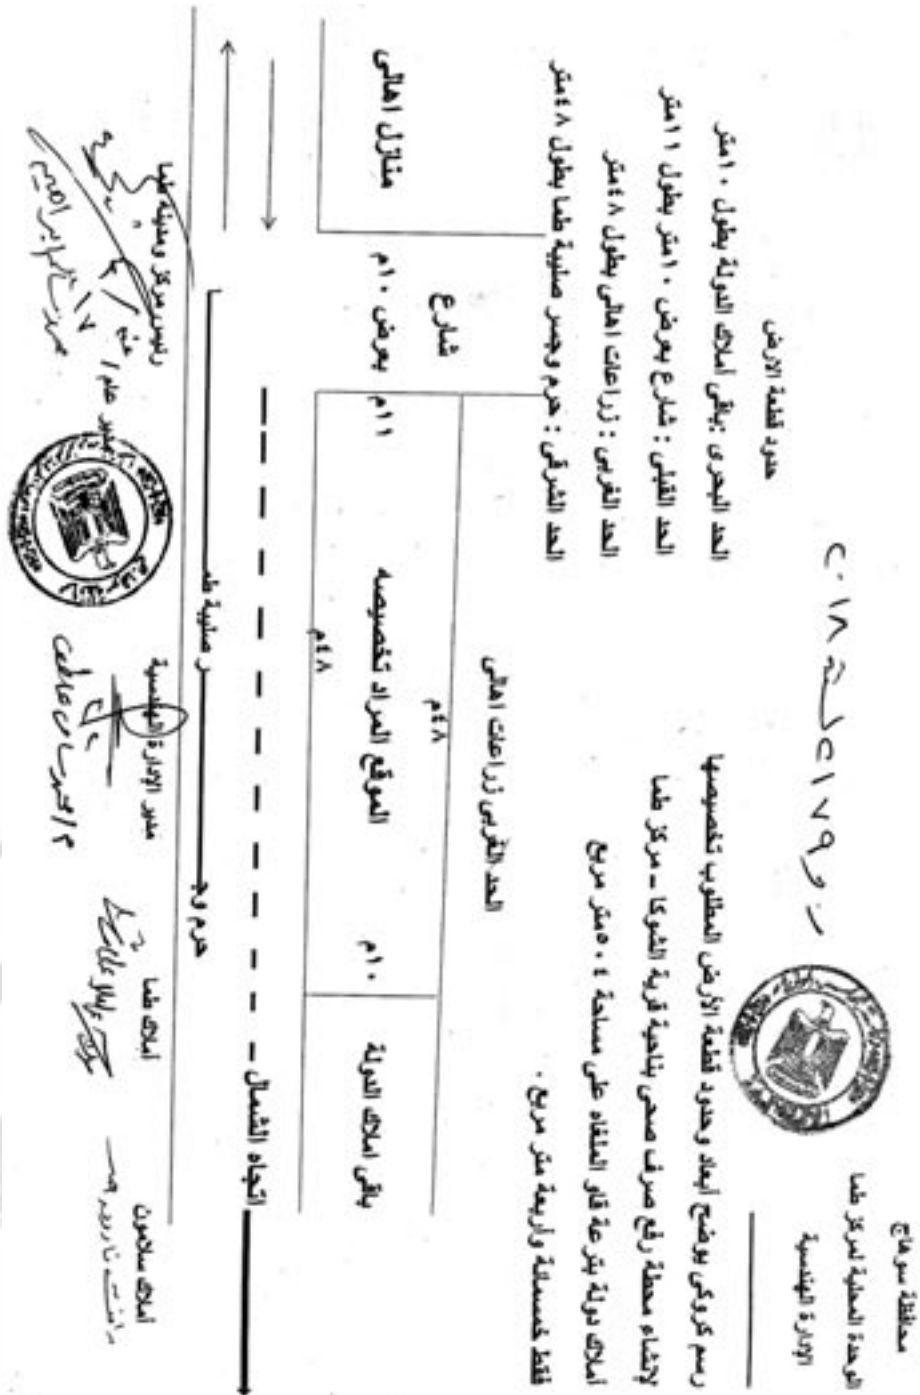 محافظة سوهاج
الوحدة المحلية لمركز طما
الإدارة الهندسية
ر و ٢١٧٩ لسنة ٢٠١٨
رسم كروكى يوضح أبعاد وحدود قطعة الأرض المطلوب تخصيصها
لإنشاء محطة رفع صرف صحى بناحية قرية الشوكا - مركز طما
أملاك دولة بترعة فاو الملغاه على مساحة ٥٠٤ متر مربع
فقط خمسمائة وأربعة متر مربع .
حدود قطعة الارض
الحد البحرى : باقى أملاك الدولة بطول ١٠ متر
الحد القبلى : شارع بعرض ١٠ متر بطول ١١ متر
الحد الغربى : زراعات اهالى بطول ٤٨ متر
الحد الشرقى : حرم وجسر صليبة طما بطول ٤٨ متر
الحد الغربى زراعات اهالى
٤٨م
شارع
بعرض ١٠م
منازل اهالى
١١م
الموقع المراد تخصيصه
١٠م
باقى املاك الدولة
٤٨م
اتجاه الشمال
حرم وجـ
ـر صليبة طمـ
رئيس مركز ومدينة طما
مدير عام /
مدير الإدارة الهندسية
أملاك طما
أملاك سلامون